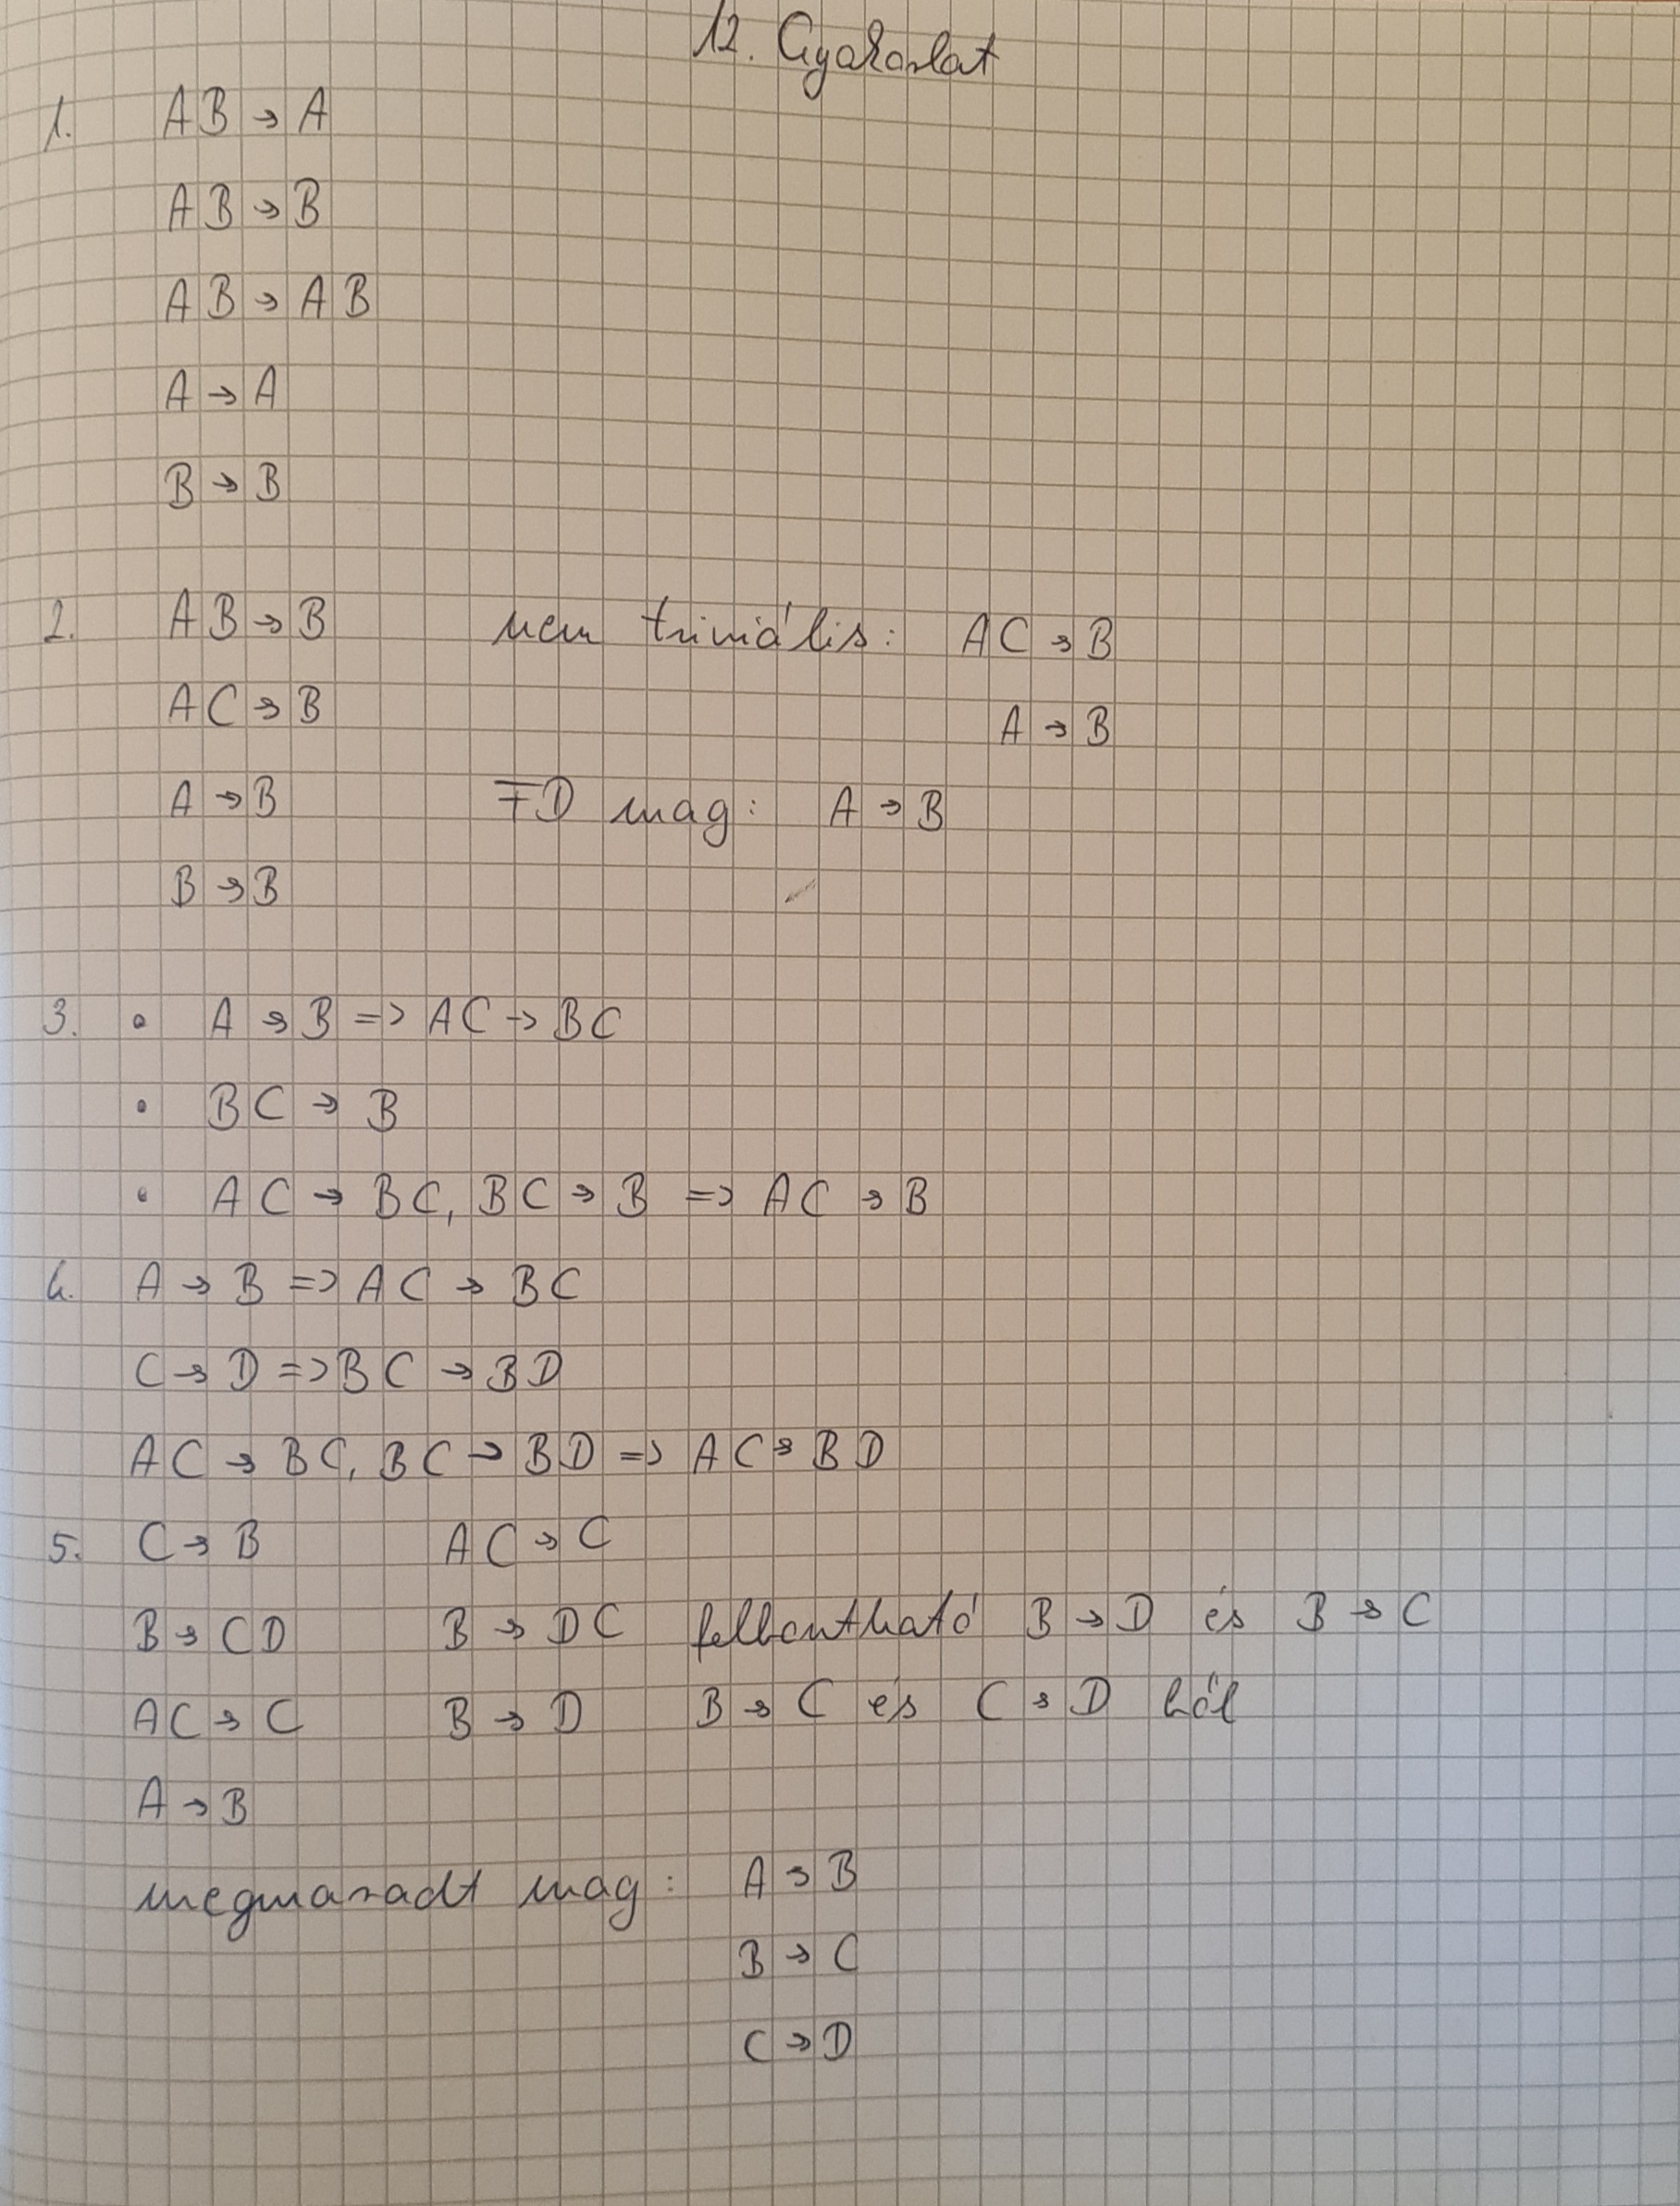 12. Gyakorlat
1. AB → A
AB → B
AB → AB
A → A
B → B
2. AB → B nem triviális: AC → B
AC → B A → B
A → B FD mag: A → B
B → B
3. • A → B => AC → BC
• BC → B
• AC → BC, BC → B => AC → B
4. A → B => AC → BC
C → D => BC → BD
AC → BC, BC → BD => AC → BD
5. C → B AC → C
B → CD B → DC felbontható B → D és B → C
AC → C B → D B → C és C → D ből
A → B
megmaradt mag: A → B
B → C
C → D